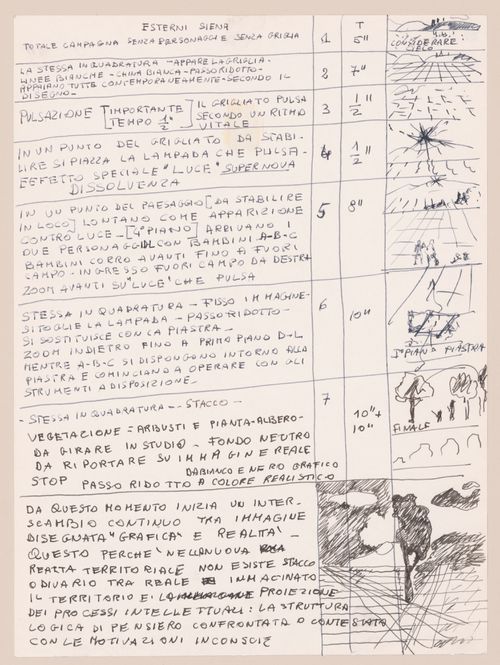 ESTERNI SIENA
T
TOTALE CAMPAGNA SENZA PERSONAGGI E SENZA GRIGLIA
1
5"
CONSIDERARE
CIELO
LA STESSA INQUADRATURA - APPARE LA GRIGLIA -
LINEE BIANCHE - CHINA BIANCA - PASSO RIDOTTO -
APPAIANO TUTTE CONTEMPORANEAMENTE - SECONDO IL
DISEGNO -
2
7"
PULSAZIONE [IMPORTANTE
TEMPO 1/2"] IL GRIGLIATO PULSA
SECONDO UN RITMO
VITALE
3
1/2"
IN UN PUNTO DEL GRIGLIATO DA STABI-
LIRE SI PIAZZA LA LAMPADA CHE PULSA-
EFFETTO SPECIALE "LUCE" SUPERNOVA
DISSOLVENZA
4
1/2"
IN UN PUNTO DEL PAESAGGIO [DA STABILIRE
IN LOCO] LONTANO COME APPARIZIONE
CONTRO LUCE - [4° PIANO] ARRIVANO I
DUE PERSONAGGI CON I BAMBINI A-B-C
BAMBINI CORRO AVANTI FINO A FUORI
CAMPO - INGRESSO FUORI CAMPO DA DESTRA
ZOOM AVANTI SU "LUCE" CHE PULSA
5
8"
STESSA INQUADRATURA - FISSO IMMAGINE-
SI TOGLIE LA LAMPADA - PASSO RIDOTTO-
SI SOSTITUISCE CON LA PIASTRA -
ZOOM INDIETRO FINO A PRIMO PIANO D-L
MENTRE A-B-C SI DISPONGONO INTORNO ALLA
PIASTRA E COMINCIANO A OPERARE CON GLI
STRUMENTI A DISPOSIZIONE -
6
10"
PIANO PIASTRA
- STESSA INQUADRATURA - STACCO -
VEGETAZIONE = ARIBUSTI E PIANTA-ALBERO-
DA GIRARE IN STUDIO - FONDO NEUTRO
DA RIPORTARE SU IMMAGINE REALE
STOP PASSO RIDOTTO DA BIANCO E NERO GRAFICO
A COLORE REALISTICO
7
10"+
10"
FINALE
DA QUESTO MOMENTO INIZIA UN INTER-
SCAMBIO CONTINUO TRA IMMAGINE
DISEGNATA "GRAFICA" E REALTA' -
QUESTO PERCHE' NELLA NUOVA
REALTA TERRITORIALE NON ESISTE STACCO
O DIVARIO TRA REALE E IMMAGINATO
IL TERRITORIO E' PROIEZIONE
DEI PROCESSI INTELLETTUALI: LA STRUTTURA
LOGICA DI PENSIERO CONFRONTATA O CONTESTATA
CON LE MOTIVAZIONI INCONSCIE